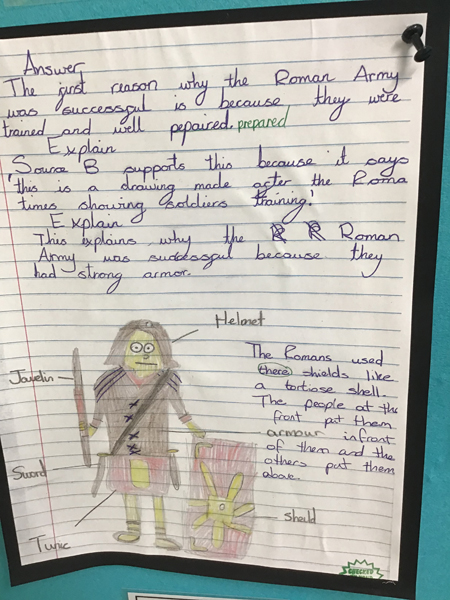 Answer
The first reason why the Roman Army
was successful is because they were
trained and well pepaired. prepared
Explain
'Source B supports this because it says
'this is a drawing made after the Roma
times showing soldiers training.'
Explain
This explains why the R R Roman
Army was successful because they
had strong armor.
Helmet
Javelin
Sword
Tunic
Sheild
The Romans used
there shields like
a tortiose shell.
The people at the
front put them
armour infront
of them and the
others put them
above.
CHECKED